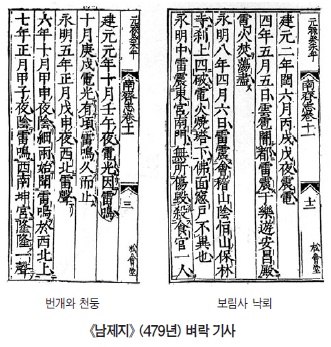 建元二年閏六月丙戌戊夜震電
四年五月五日雲雹開都雷震于樂遊安昌殿
電火焚蕩盡
永明八年四月六日雷震會稽山陰恒山保林
寺刹上四破電火燒塔下佛面窓戶不異也
永明中雷震東宮南門無所傷毀殺食官一人
南齊志卷十一
建元元年十月壬午夜電光因雷鳴
十月庚戌電光有頃雷鳴久而止
永明五年正月戊申夜西北雷聲
六年十月甲申夜陰細雨始聞雷鳴於西北上
七年正月甲子夜陰雷鳴西南坤宮隆隆一聲
南齊志卷十一
번개와 천둥
보림사 낙뢰
《남제지》 (479년) 벼락 기사